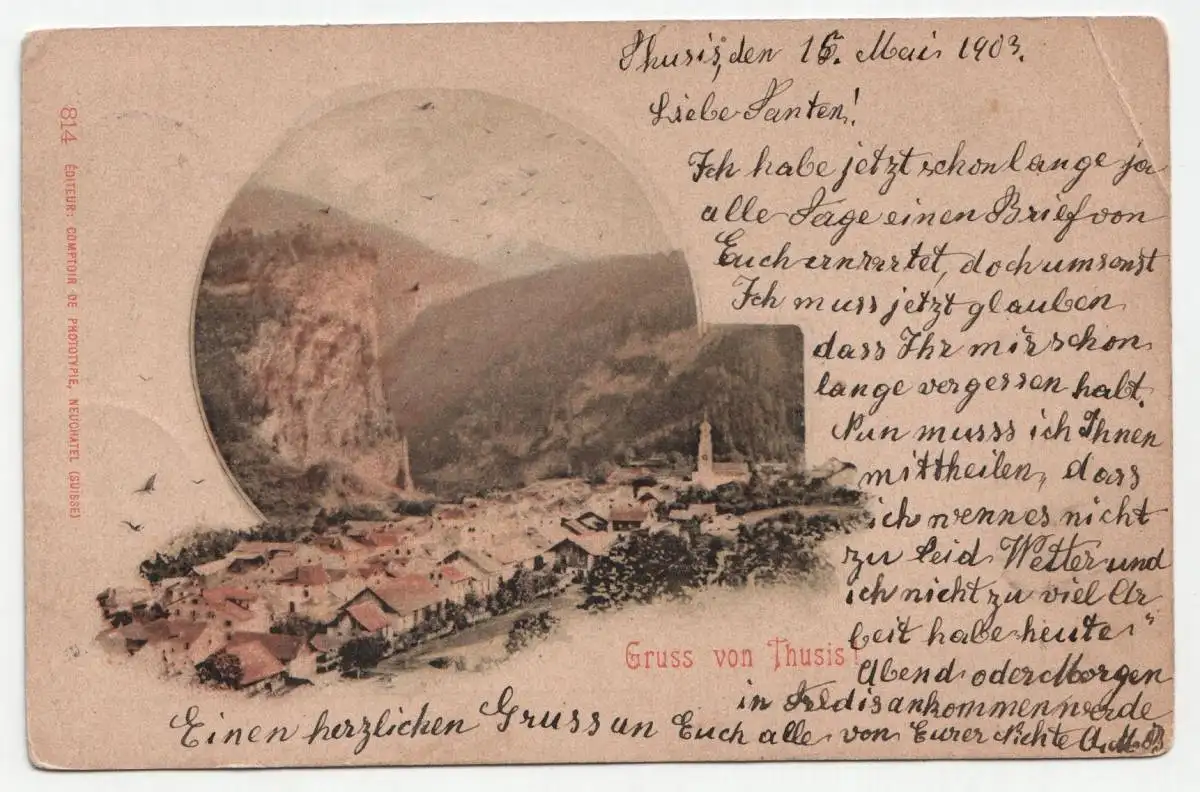 Thusis, den 15. Mai 1903.
Liebe Tanten!
Ich habe jetzt schon lange ja
alle Tage einen Brief von
Euch erwartet, doch umsonst
Ich muss jetzt glauben
dass Ihr mir schon
lange vergessen habt.
Nun musss ich Ihnen
mittheilen, dass
ich wenn es nicht
zu leid Wetter und
ich nicht zu viel Ar
beit habe heute
Abend oder Morgen
in Feldis ankommen werde
Einen herzlichen Gruss an Euch alle von Eurer Nichte A. M. B.
Gruss von Thusis!
814 ÉDITEUR: COMPTOIR DE PHOTOTYPIE, NEUCHATEL (SUISSE)